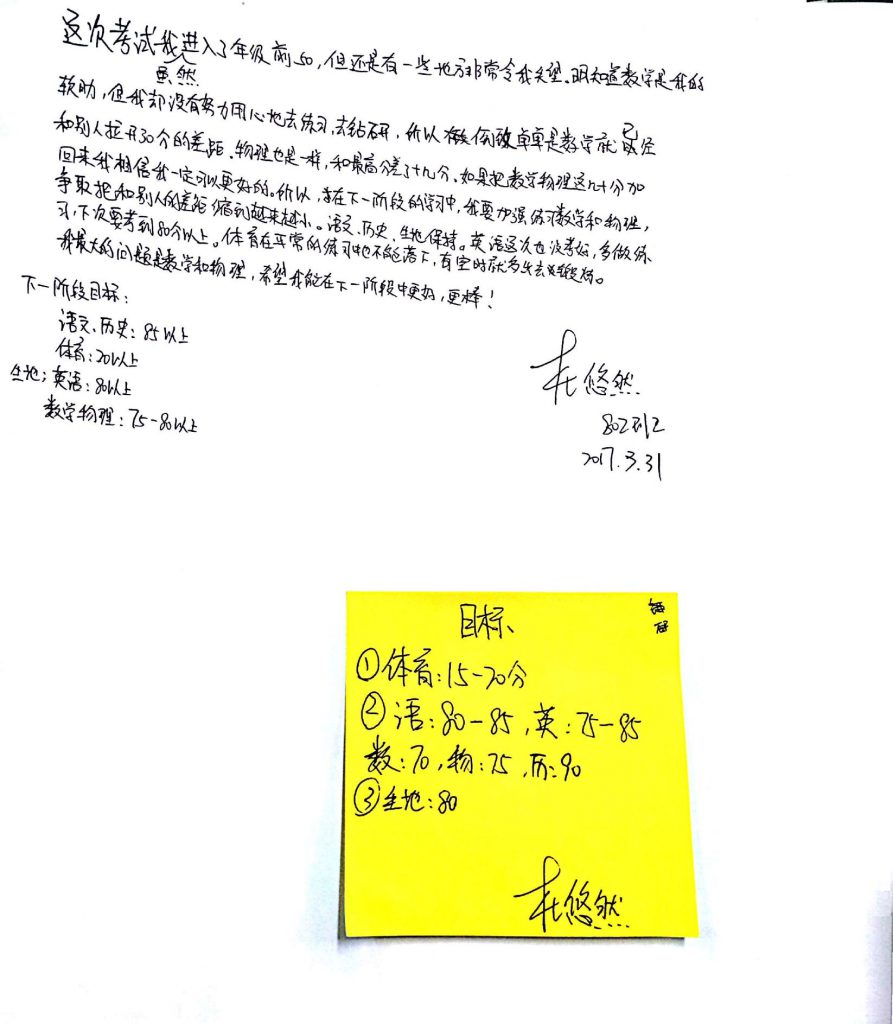 这次考试我虽然进入了年级前50,但还是有一些地方非常令我失望。明知道数学是我的
软肋,但我却没有努力用心地去练习,去钻研,所以导致单单是数学就已经
和别人拉开30分的差距。物理也是一样,和最高分差了十九分。如果把数学物理这几十分加
回来我相信我一定可以更好的。所以,在下一阶段的学习中,我要加强练习数学和物理,
争取把和别人的差距缩到越来越小。语文、历史、生地保持。英语这次也没考好,多做练
习,下次要考到80分以上。体育在平常的练习中也不能落下,有空时就多出去锻炼。
我最大的问题是数学和物理,希望我能在下一阶段中更好,更棒!
下一阶段目标:
语文、历史:85以上
体育:20以上
生地;英语:80以上
数学物理:75-80以上
杜悠然
802班
2017.3.31
目标、
①体育:15-20分
②语:80-85,英:75-85
数:70,物:75,历:90
③生地:80
杜悠然